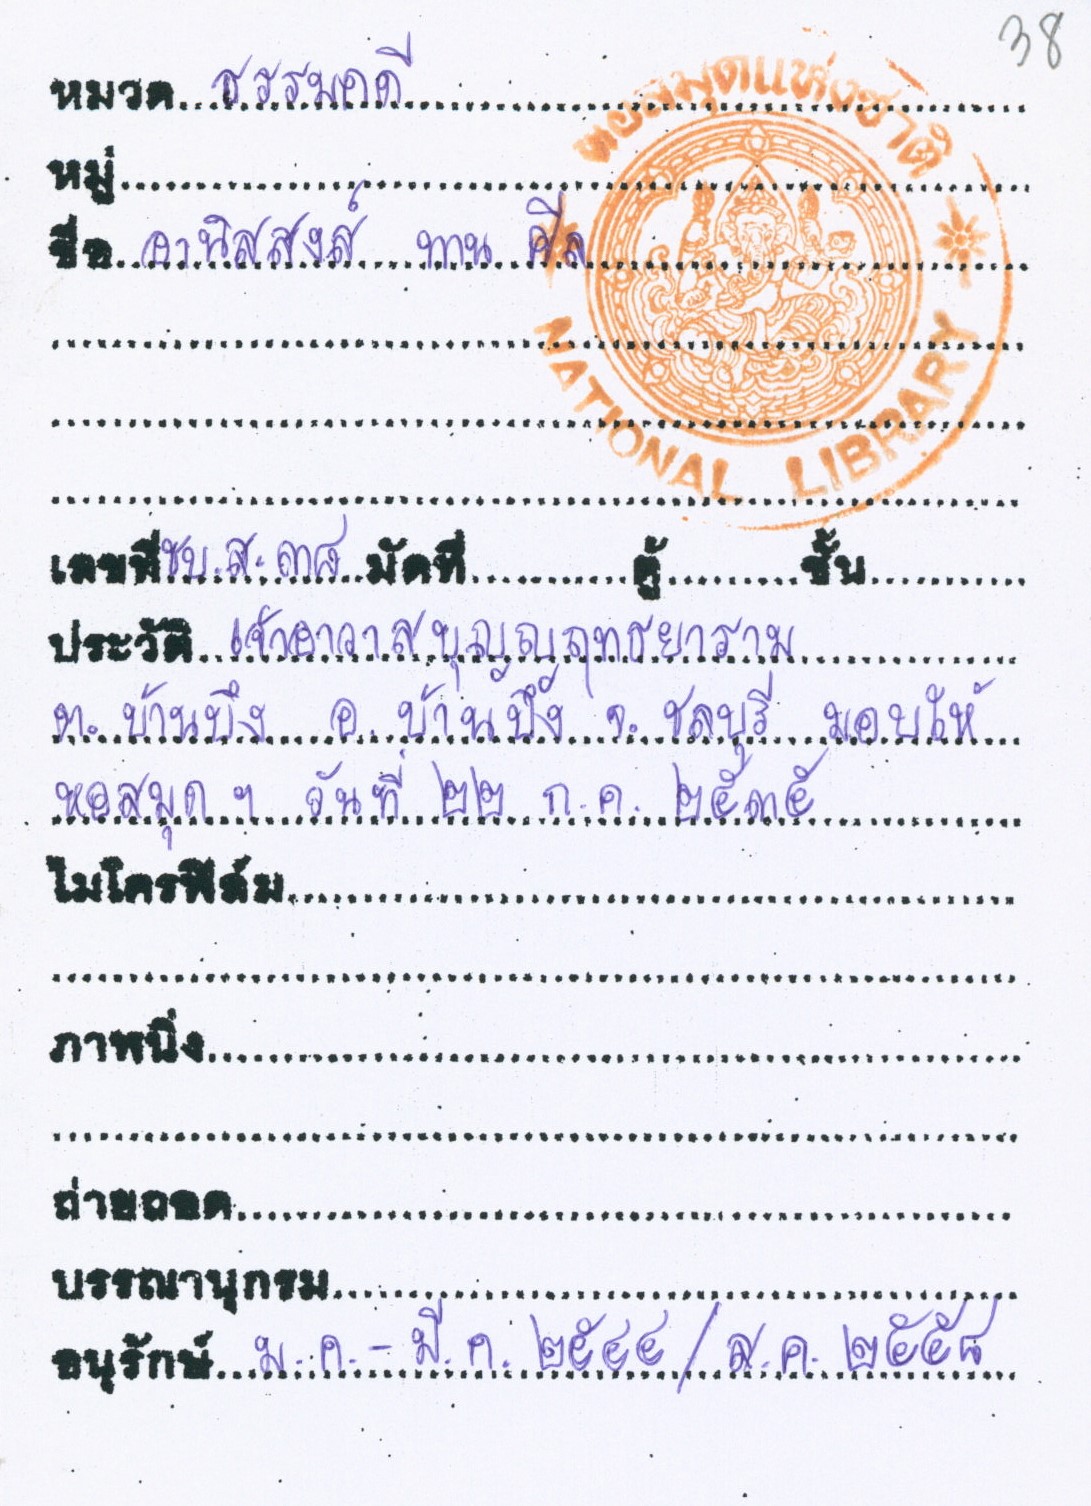 38
หอสมุดแห่งชาติ
NATIONAL LIBRARY
หมวด ธรรมคดี
หมู่
ชื่อ อานิสสงส์ ทาน ศีล
เลขที่ ชบ.ส.๓๘ มัดที่ ตู้ ชั้น
ประวัติ เจ้าอาวาสบุญญฤทธยาราม
ต. บ้านบึง อ. บ้านบึง จ. ชลบุรี มอบให้
หอสมุด ฯ วันที่ ๒๒ ก.ค. ๒๕๓๕
ไมโครฟิล์ม
ภาพนิ่ง
ถ่ายถอด
บรรณานุกรม
อนุรักษ์ ม.ค. - มี.ค. ๒๕๔๔ / ส.ค. ๒๕๕๘